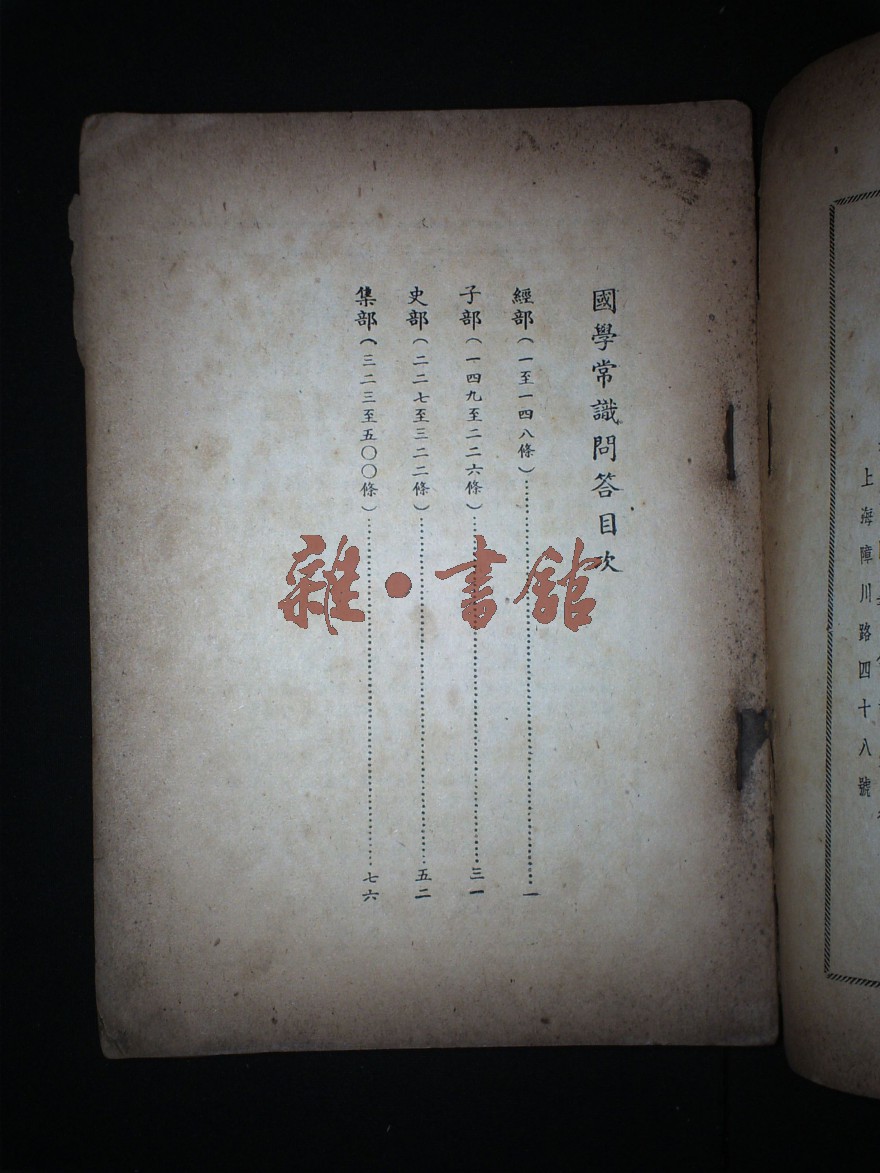 上海障川路四十八號
國學常識問答目次
經部（一至一四八條）…………一
子部（一四九至二二六條）…………三一
史部（二二七至三二二條）…………五二
集部（三二三至五〇〇條）…………七六
雜·書館